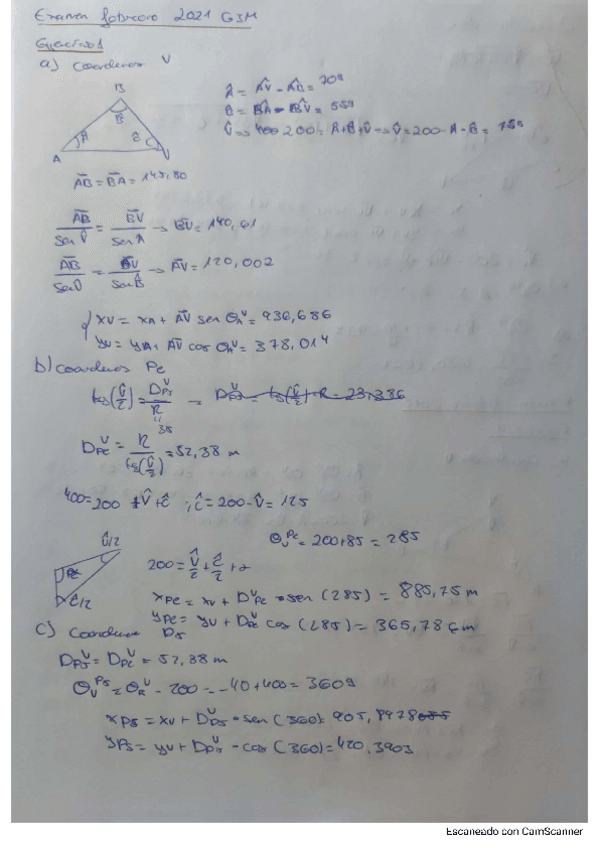 Examen febrero 2021 G3M
Ejercicio 1
a) Coordenadas V
B
Â = AV - AB = 70g
B = BA - BV = 55g
V̂ → 400 200 = A+B+V → V̂ = 200 - A - B = 75g
A
V
AB = BA = 145,80
AB/sen V = BV/sen A → BV = 140,61
AB/sen V = BV/sen B → AV = 120,002
xV = xA + AV sen θAV = 936,686
yV = yA + AV cos θAV = 378,014
b) Coordenadas Pe
tg(V̂/2) = DPsV/R →
35
DPeV = R/tg(V̂/2) = 52,38 m
400 = 200 + V̂ + ĉ ; ĉ = 200 - V̂ = 125
θVPe = 200+85 = 285
V̂/2
200 = V̂/2 + ĉ/2 + α
Pe
ĉ/2
xPe = xV + DVPe · sen (285) = 885,75 m
yPe = yV + DVPe cos (285) = 365,78 m
c) Coordenadas Ps
DPsV = DPeV = 52,38 m
θVPs = θAV - 200 = -40+400 = 360g
xPs = xV + DPsV · sen (360) = 905,8978
yPs = yV + DPsV · cos (360) = 420,3903
Escaneado con CamScanner